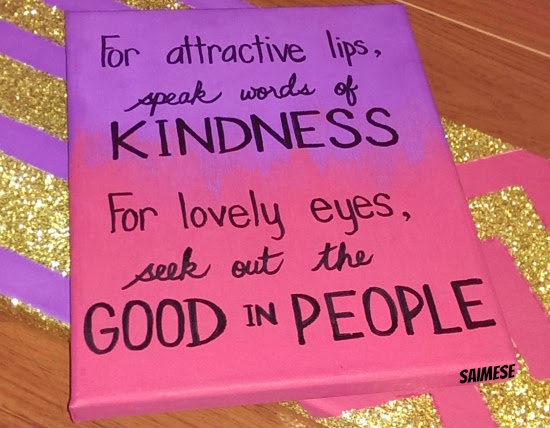 For attractive lips,
speak words of
KINDNESS
For lovely eyes,
seek out the
GOOD IN PEOPLE
SAIMESE